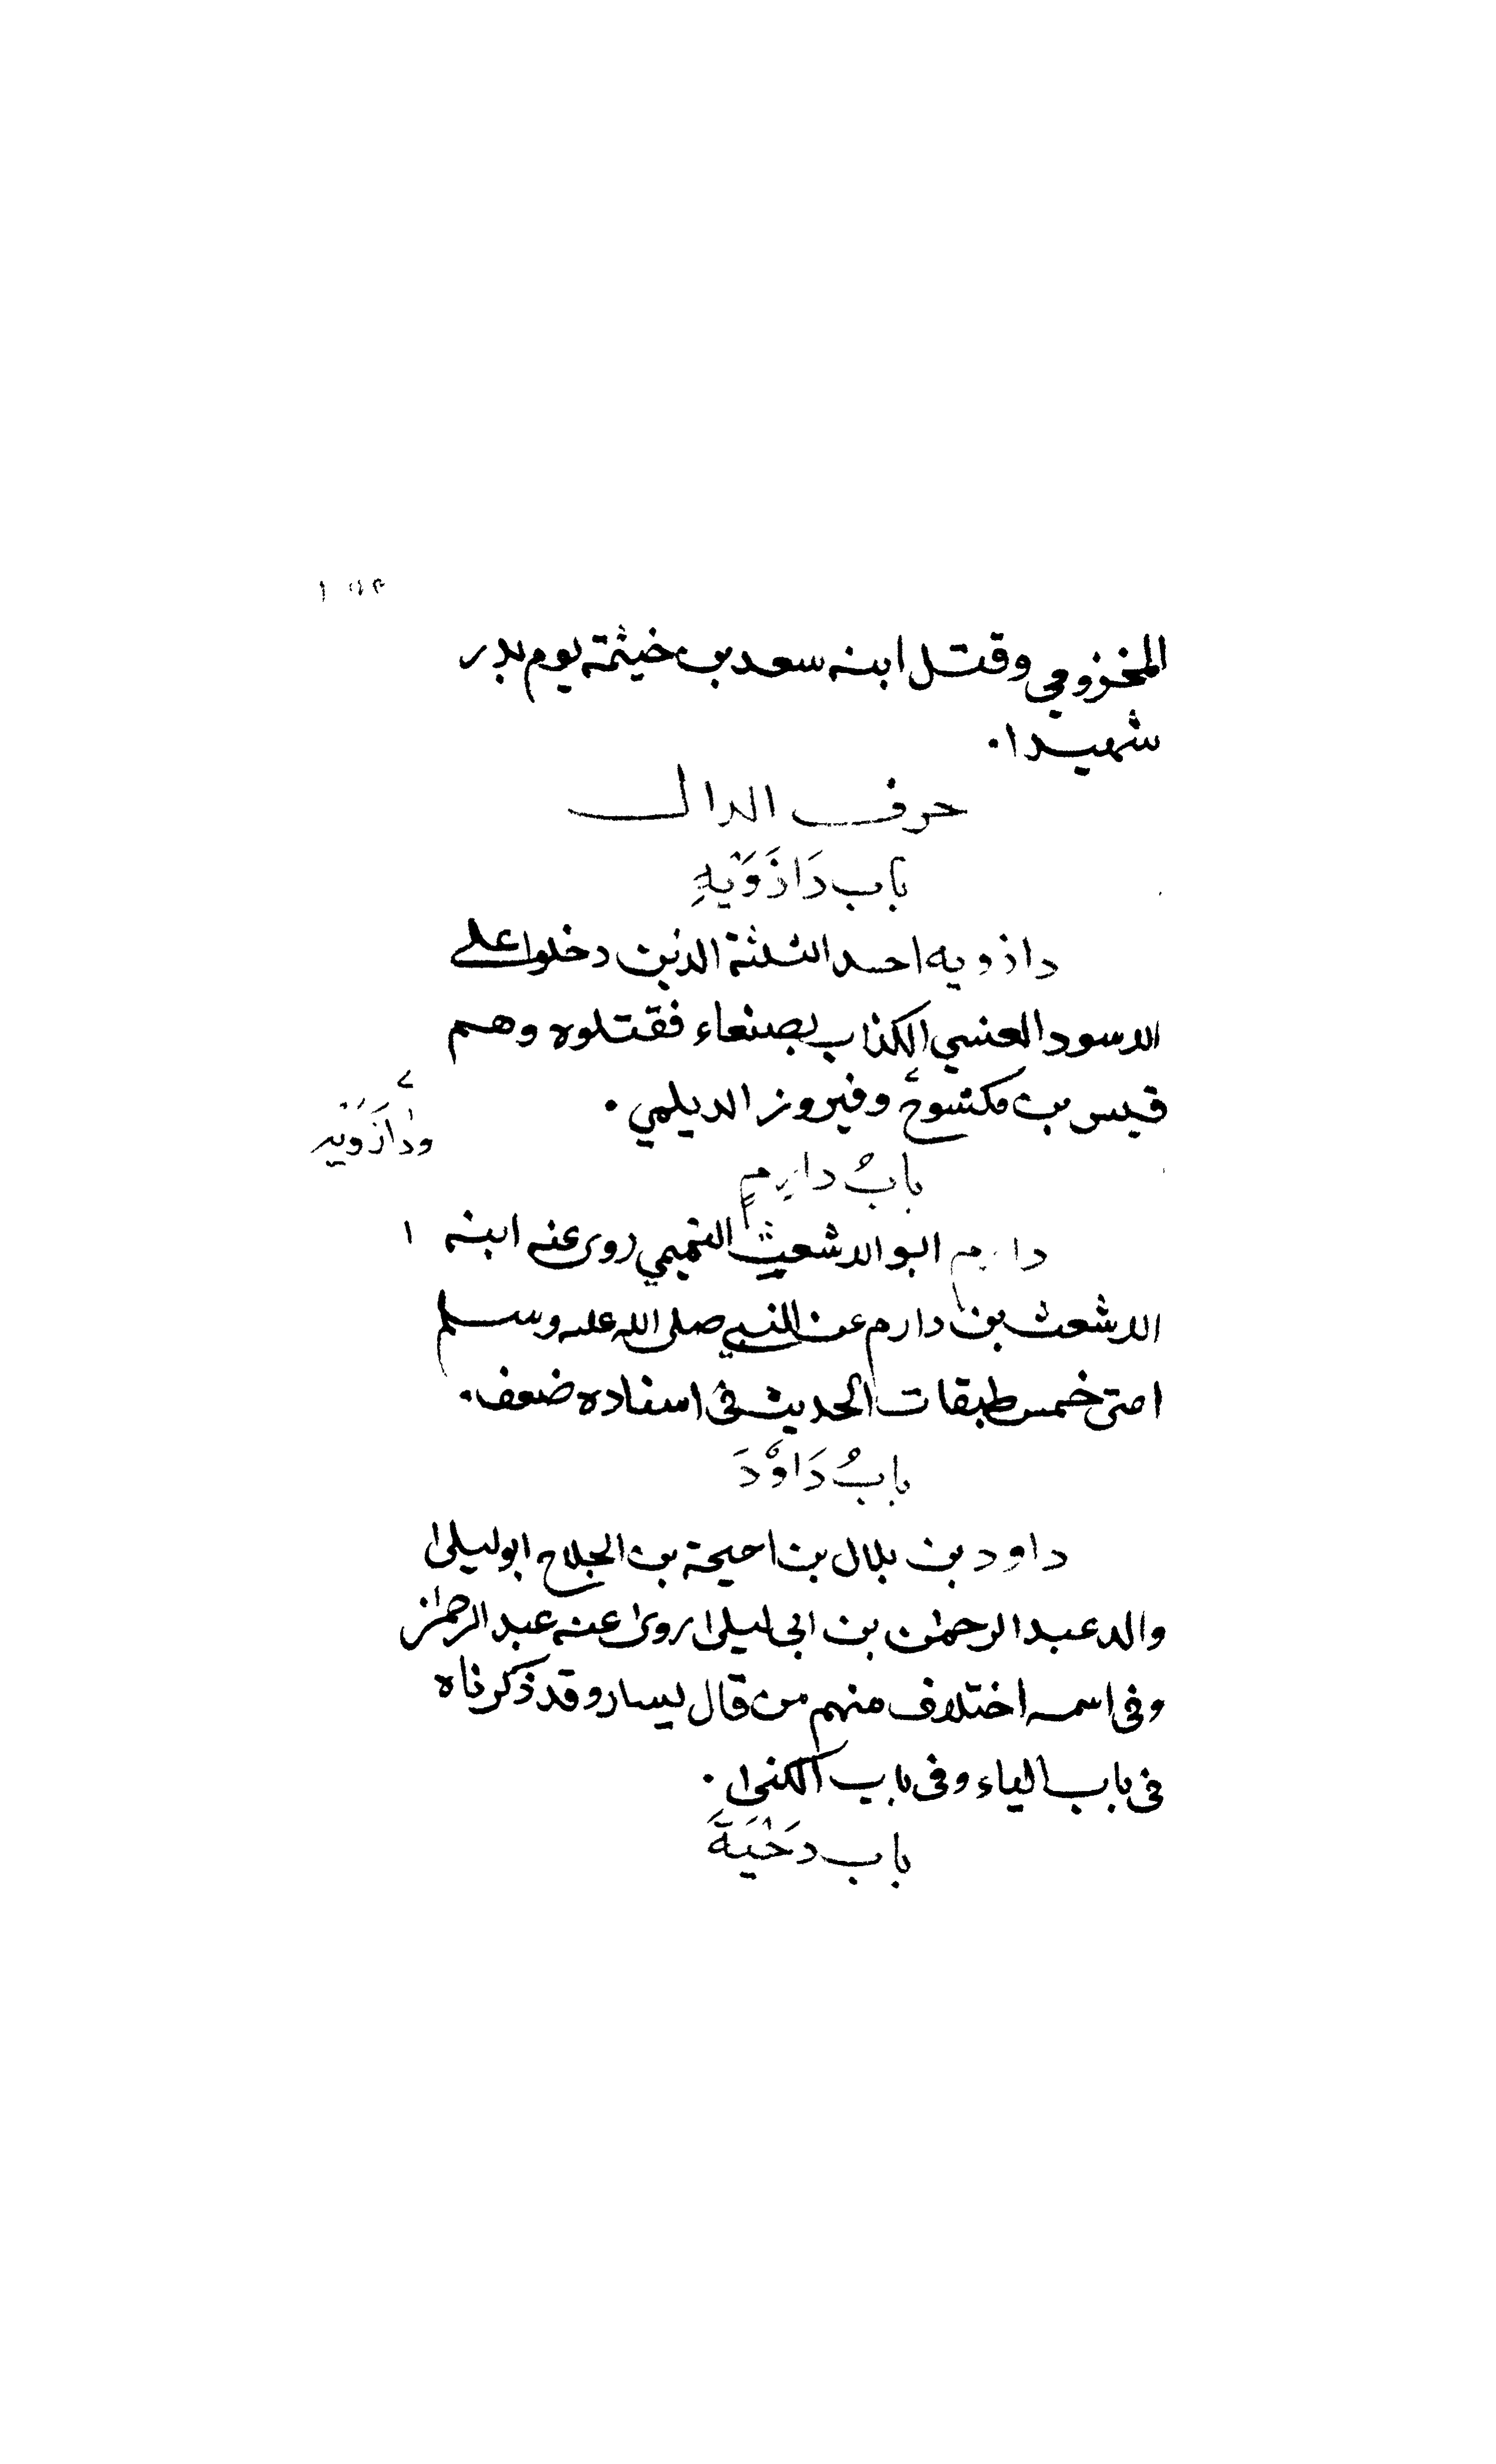 المخزومي وقتل ابنه سعد بن خيثمة يوم بدر
شهيدا ۰
حرف الدال
باب دَاذَوَيْهِ
داذويه احد الثلثة الذين دخلوا على
الاسود العنسي الكذاب بصنعاء فقتلوه وهم
قيس بن مكشوح وفيروز الديلمي ۰
وداذَوَيْه
بابُ دارم
دارم ابو الاشعث التميمي روى عنه ابنه
الاشعث بن دارم عن النبي صلى الله عليه وسلم
امتى خمس طبقات الحديث في اسناده ضعف ۰
بابُ دَاوُدَ
داود بن بلال بن احيحة بن الجلاح ابو ليلى
والد عبد الرحمٰن بن ابى ليلى روى عنه عبد الرحمٰن
وفى اسمه اختلاف منهم من قال يسار وقد ذكرناه
فى باب الياء وفى باب الكنى ۰
باب دَحْيَةَ